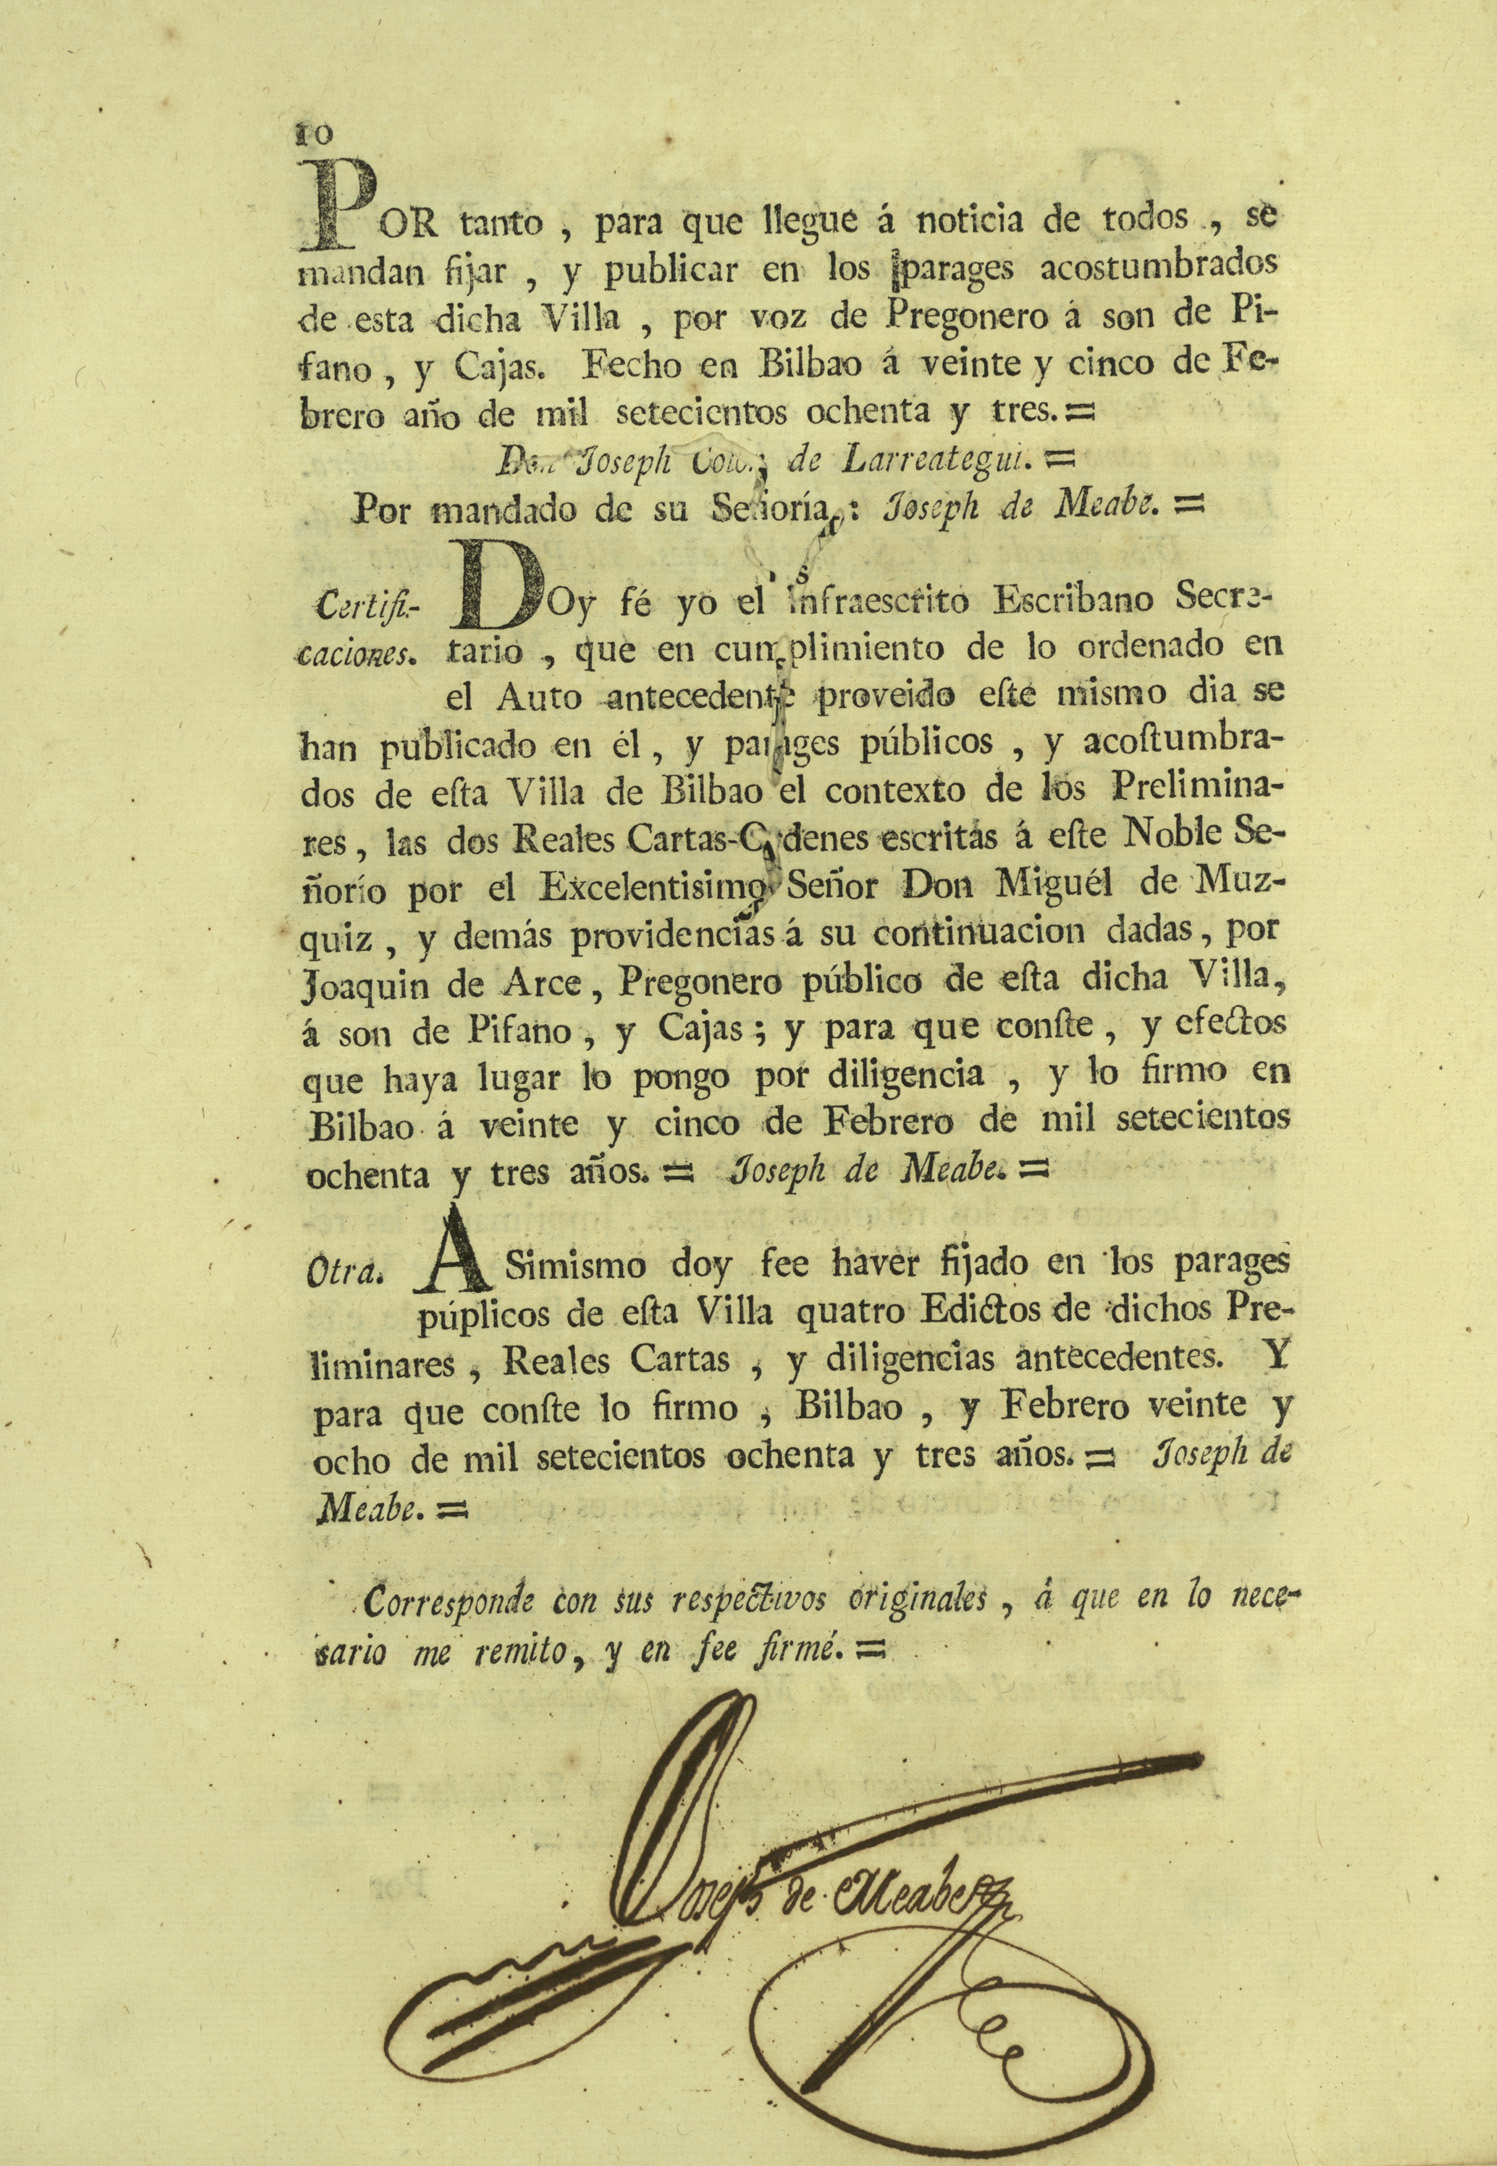 10
POR tanto , para que llegue á noticia de todos , se
mandan fijar , y publicar en los parages acostumbrados
de esta dicha Villa , por voz de Pregonero á son de Pi-
fano , y Cajas. Fecho en Bilbao á veinte y cinco de Fe-
brero año de mil setecientos ochenta y tres. =
Don Joseph Colon de Larreategui. =
Por mandado de su Señoría : Joseph de Meabe. =
Certifi- DOy fé yo el infraescrito Escribano Secre-
caciones. tario , que en cumplimiento de lo ordenado en
el Auto antecedente proveido eſte mismo dia se
han publicado en él , y parages públicos , y acoſtumbra-
dos de eſta Villa de Bilbao el contexto de los Prelimina-
res , las dos Reales Cartas-Ordenes escritas á eſte Noble Se-
ñorío por el Excelentisimo Señor Don Miguél de Muz-
quiz , y demás providencias á su continuacion dadas , por
Joaquin de Arce , Pregonero público de eſta dicha Villa,
á son de Pifano , y Cajas ; y para que conſte , y efectos
que haya lugar lo pongo por diligencia , y lo firmo en
Bilbao á veinte y cinco de Febrero de mil setecientos
ochenta y tres años. = Joseph de Meabe. =
Otra. ASimismo doy fee haver fijado en los parages
púplicos de eſta Villa quatro Edictos de dichos Pre-
liminares , Reales Cartas , y diligencias antecedentes. Y
para que conſte lo firmo , Bilbao , y Febrero veinte y
ocho de mil setecientos ochenta y tres años. = Joseph de
Meabe. =
Corresponde con sus respectivos originales , á que en lo nece-
sario me remito, y en fee firmé. =
Joseph de Meabe